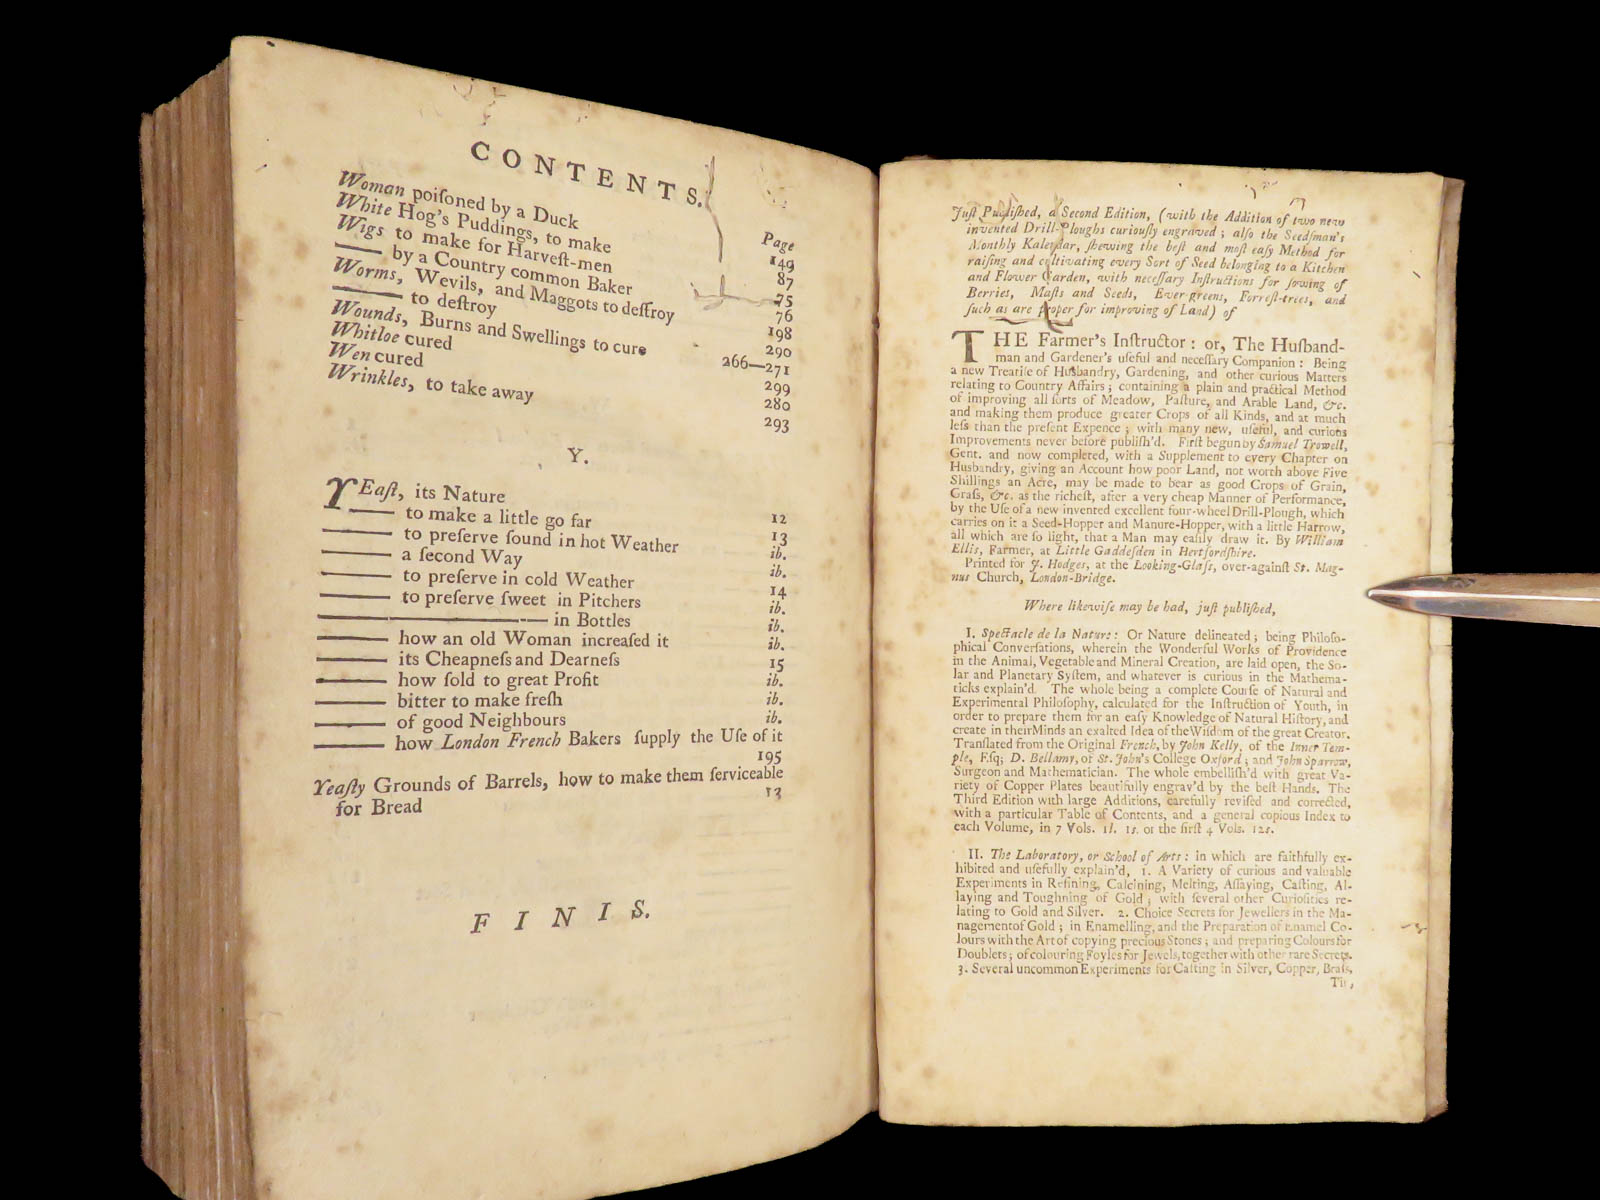 CONTENTS.
Page
Woman poiſoned by a Duck 149
White Hog's Puddings, to make 87
Wigs to make for Harveſt-men 75
—— by a Country common Baker 76
Worms, Wevils, and Maggots to deſtroy 198
——— to deſtroy 290
Wounds, Burns and Swellings to cure 266—271
Whitloe cured 299
Wen cured 280
Wrinkles, to take away 293
Y.
YEaſt, its Nature 12
—— to make a little go far 13
——— to preſerve ſound in hot Weather ib.
——— a ſecond Way ib.
——— to preſerve in cold Weather 14
——— to preſerve ſweet in Pitchers ib.
—————————— in Bottles ib.
——— how an old Woman increaſed it ib.
——— its Cheapneſs and Dearneſs 15
——— how ſold to great Profit ib.
——— bitter to make freſh ib.
——— of good Neighbours ib.
——— how London French Bakers ſupply the Uſe of it
195
Yeaſty Grounds of Barrels, how to make them ſerviceable
for Bread 13
FINIS.
Juſt Publiſhed, a Second Edition, (with the Addition of two new
invented Drill-Ploughs curiouſly engraved; alſo the Seedſman's
Monthly Kalendar, ſhewing the beſt and moſt eaſy Method for
raiſing and cultivating every Sort of Seed belonging to a Kitchen
and Flower Garden, with neceſſary Inſtructions for ſowing of
Berries, Maſts and Seeds, Ever-greens, Forreſt-trees, and
ſuch as are proper for improving of Land) of
THE Farmer's Inſtructor: or, The Huſband-
man and Gardener's uſeful and neceſſary Companion: Being
a new Treatiſe of Huſbandry, Gardening, and other curious Matters
relating to Country Affairs; containing a plain and practical Method
of improving all ſorts of Meadow, Paſture, and Arable Land, &c.
and making them produce greater Crops of all Kinds, and at much
leſs than the preſent Expence; with many new, uſeful, and curious
Improvements never before publiſh'd. Firſt begun by Samuel Trowell,
Gent. and now completed, with a Supplement to every Chapter on
Huſbandry, giving an Account how poor Land, not worth above Five
Shillings an Acre, may be made to bear as good Crops of Grain,
Graſs, &c. as the richeſt, after a very cheap Manner of Performance,
by the Uſe of a new invented excellent four-wheel Drill-Plough, which
carries on it a Seed-Hopper and Manure-Hopper, with a little Harrow,
all which are ſo light, that a Man may eaſily draw it. By William
Ellis, Farmer, at Little Gaddeſden in Hertfordſhire.
Printed for J. Hodges, at the Looking-Glaſs, over-againſt St. Mag-
nus Church, London-Bridge.
Where likewiſe may be had, juſt publiſhed,
I. Spectacle de la Nature: Or Nature delineated; being Philoſo-
phical Converſations, wherein the Wonderful Works of Providence
in the Animal, Vegetable and Mineral Creation, are laid open, the So-
lar and Planetary Syſtem, and whatever is curious in the Mathema-
ticks explain'd. The whole being a complete Courſe of Natural and
Experimental Philoſophy, calculated for the Inſtruction of Youth, in
order to prepare them for an eaſy Knowledge of Natural Hiſtory, and
create in their Minds an exalted Idea of the Wiſdom of the great Creator.
Tranſlated from the Original French, by John Kelly, of the Inner Tem-
ple, Eſq; D. Bellamy, of St. John's College Oxford; and John Sparrow,
Surgeon and Mathematician. The whole embelliſh'd with great Va-
riety of Copper Plates beautifully engrav'd by the beſt Hands. The
Third Edition with large Additions, carefully reviſed and corrected,
with a particular Table of Contents, and a general copious Index to
each Volume, in 7 Vols. 1l. 1s. or the firſt 4 Vols. 12s.
II. The Laboratory, or School of Arts: in which are faithfully ex-
hibited and uſefully explain'd, 1. A Variety of curious and valuable
Experiments in Refining, Calcining, Melting, Aſſaying, Caſting, Al-
laying and Toughning of Gold; with ſeveral other Curioſities re-
lating to Gold and Silver. 2. Choice Secrets for Jewellers in the Ma-
nagement of Gold; in Enamelling, and the Preparation of Enamel Co-
lours with the Art of copying precious Stones; and preparing Colours for
Doublets; of colouring Foyles for Jewels, together with other rare Secrets.
3. Several uncommon Experiments for Caſting in Silver, Copper, Braſs,
Tin,